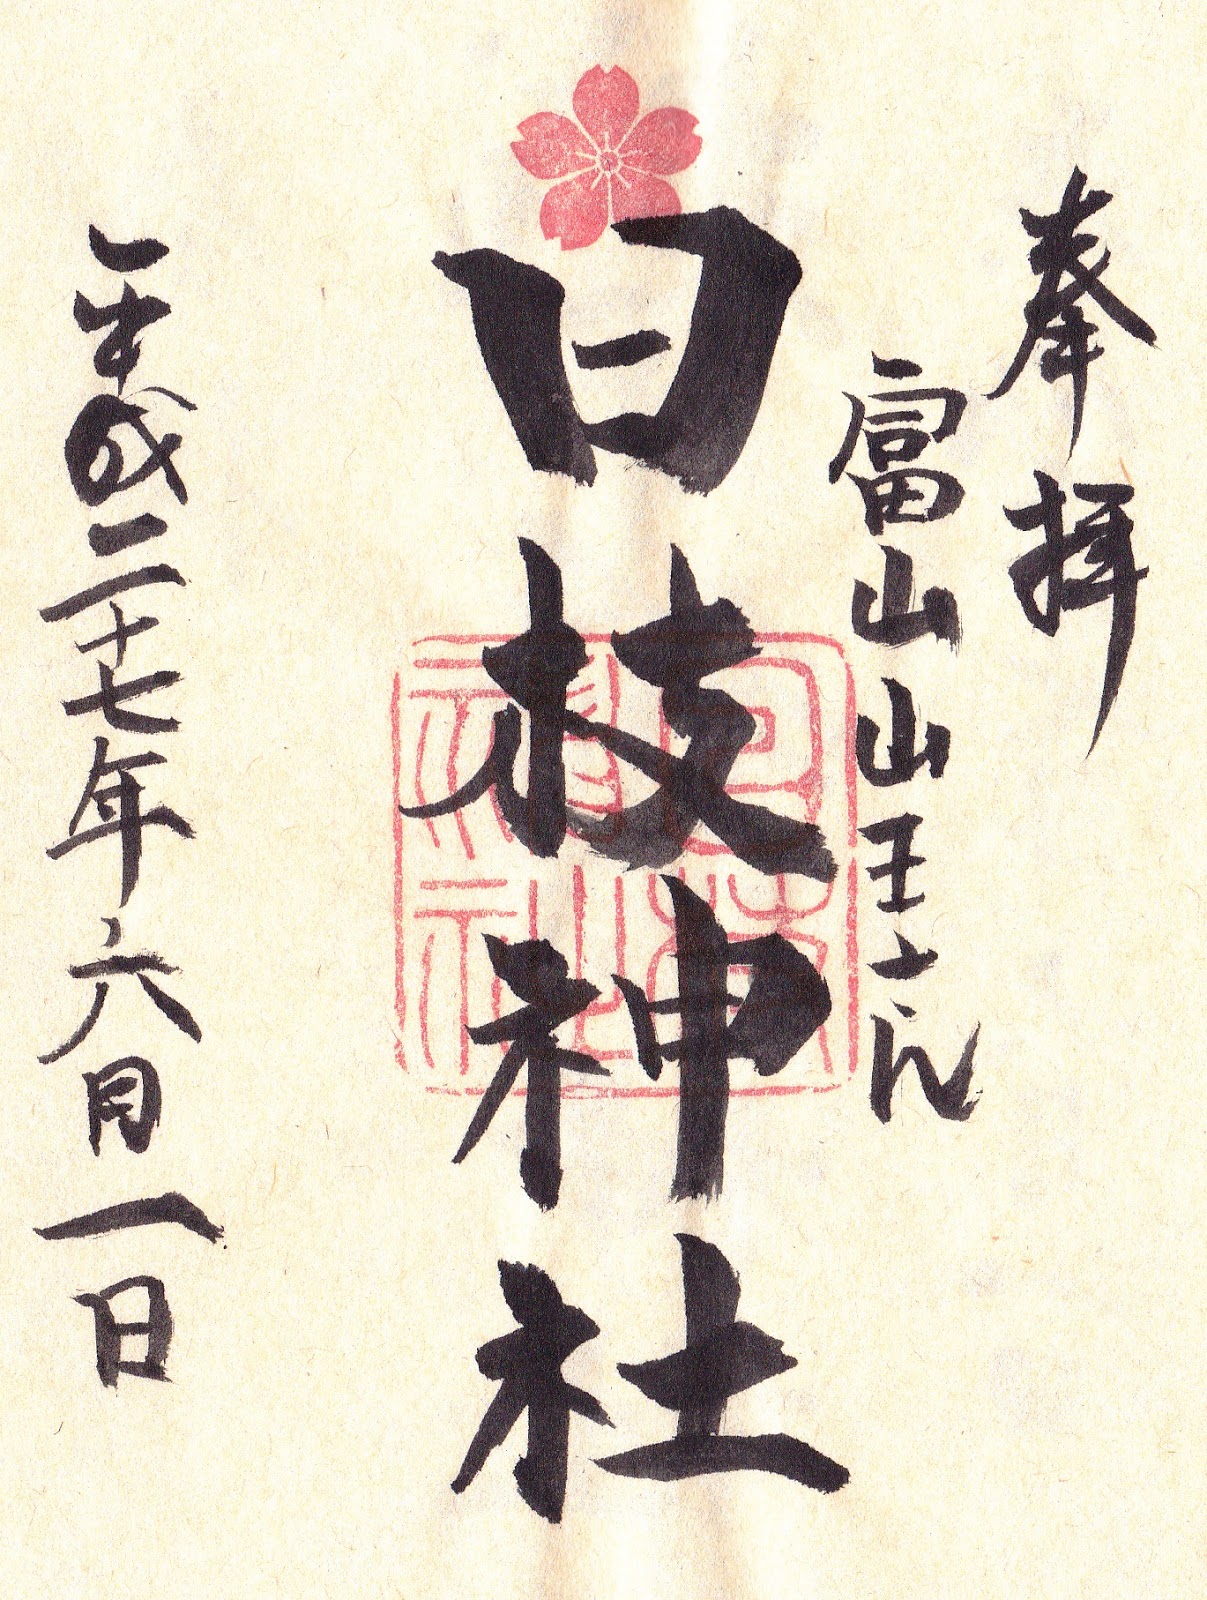 奉拝
富山山王さん
日枝神社
平成二十七年六月一日